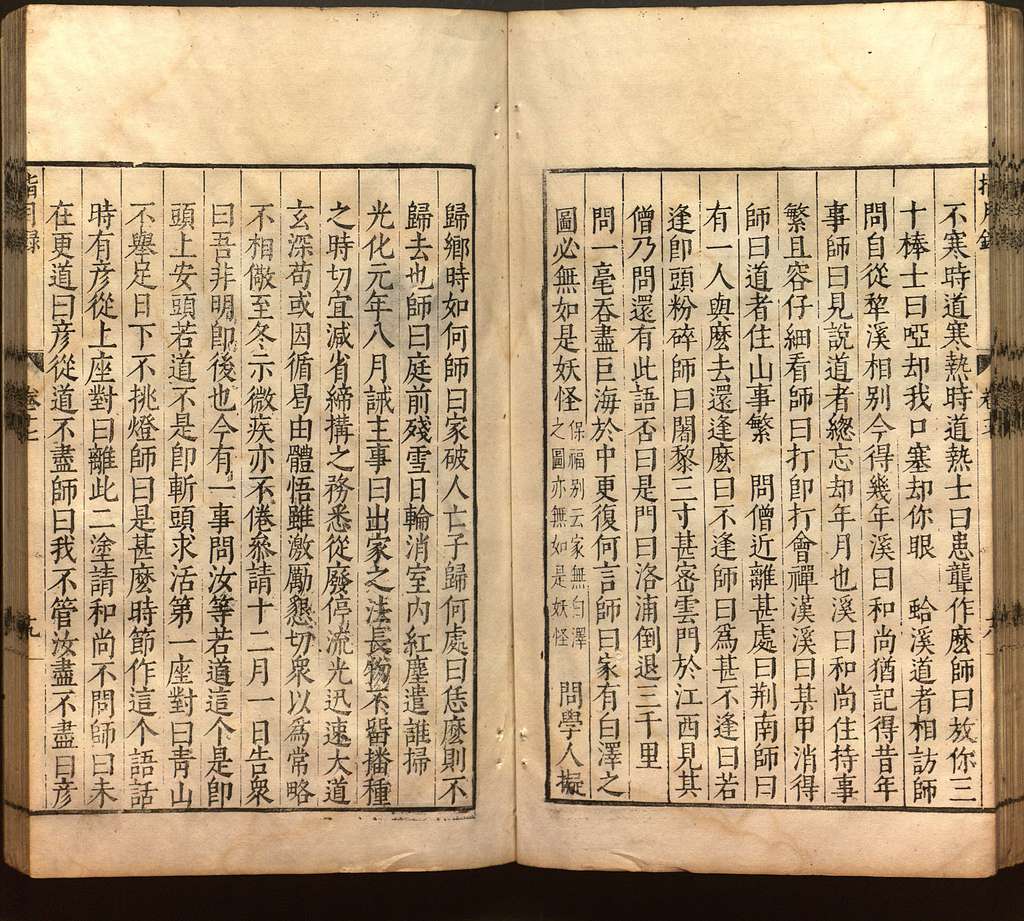 不寒時道寒熱時道熱士曰患聾作麽師曰放你三
十棒士曰啞却我口塞却你眼　蛤溪道者相訪師
問自從犂溪相別今得幾年溪曰和尚猶記得昔年
事師曰見說道者緫忘却年月也溪曰和尚住持事
繁且容仔細看師曰打卽打會禪漢溪曰某甲消得
師曰道者住山事繁　問僧近離甚處曰荆南師曰
有一人與麽去還逢麽曰不逢師曰爲甚不逢曰若
逢卽頭粉碎師曰闍黎三寸甚密雲門於江西見其
僧乃問還有此語否曰是門曰洛浦倒退三千里
問一毫吞盡巨海於中更復何言師曰家有白澤之
圖必無如是妖怪
保福別云家無白澤
之圖亦無如是妖怪
問學人擬
歸鄉時如何師曰家破人亡子歸何處曰恁麽則不
歸去也師曰庭前殘雪日輪消室內紅塵遣誰掃
光化元年八月誡主事曰出家之法長物不留播種
之時切宜減省締搆之務悉從廢停流光迅速大道
玄深苟或因循曷由體悟雖激勵懇切衆以爲常略
不相儆至冬示微疾亦不倦叅請十二月一日告衆
曰吾非明卽後也今有一事問汝等若道這个是卽
頭上安頭若道不是卽斬頭求活第一座對曰靑山
不舉足日下不挑燈師曰是甚麽時節作這个語話
時有彥從上座對曰離此二塗請和尚不問師曰未
在更道曰彥從道不盡師曰我不管汝盡不盡曰彥
指月錄
卷十七
十九